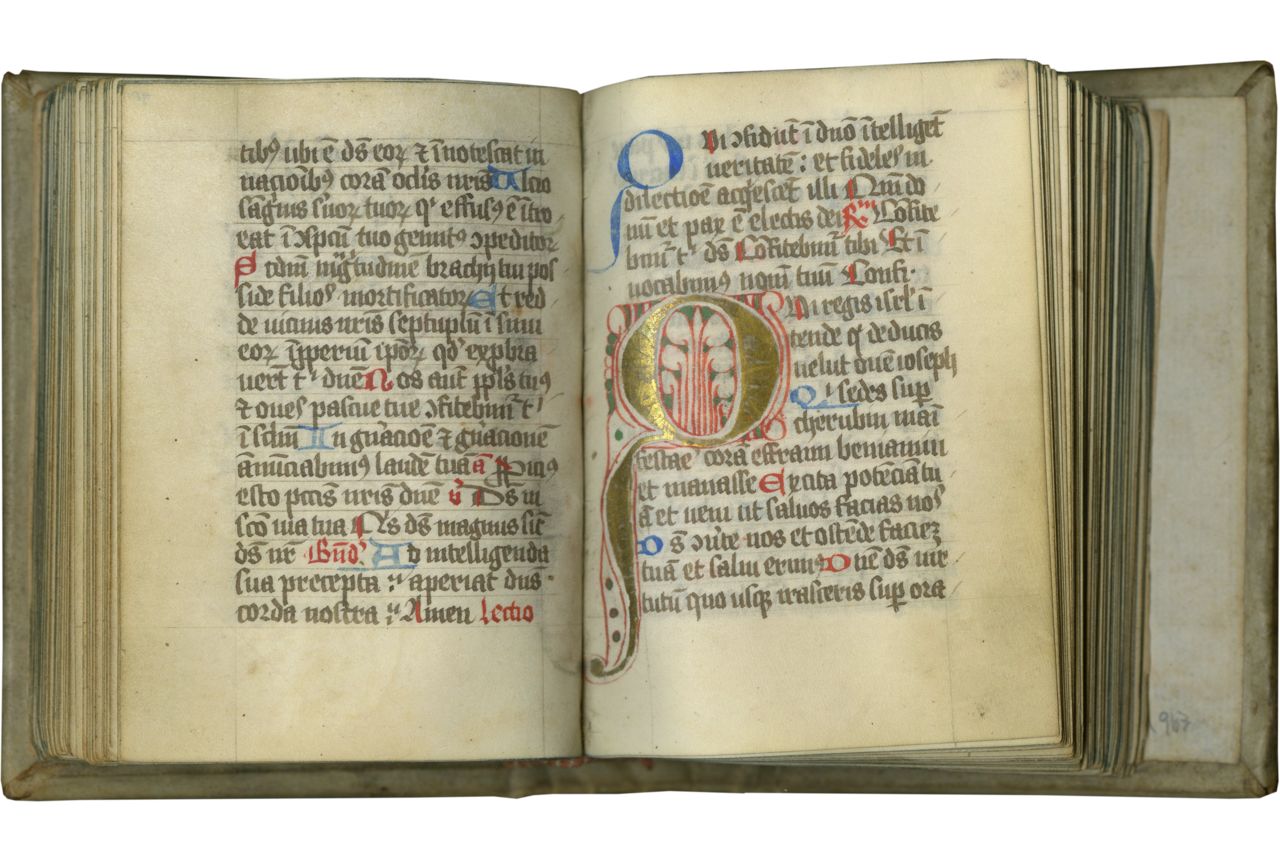 tibꝰ ubi ē ds̄ eoꝝ ⁊ īnotescat in
nacioībꝰ corā oclīs nr̄is Ulcio
sāguis s̄uoꝝ tuoꝝ qͥ effusꝰ ē ītro
eat ī ꝯspc̄tu tuo gemitꝰ ꝯpeditoꝝ
Scdm̄ mḡtudinē brachij tui pos
side filios mortificatoꝝ Et red
de vicinis nr̄is septuplū ī sinu
eoꝝ īꝓperiū ip̄oꝝ qd̓ exprobra
verūt tͥ dn̄e Nos aūt ppl̄s tuꝰ
⁊ oues pascue tue ꝯfitebimr̄ tͥ
ī sclm̄ In gn̄acioē ⁊ gn̄acionē
ānūciabimꝰ laudē tuā ā Ppiciꝰ
esto pctīs nr̄is dn̄e v̓ Ds̄ in
scō via tua Qͥs ds̄ magnus sic̄
ds̄ nr̄ Bn̄d̓ Ad intelligenda
sua precepta aperiat dn̄s
corda nostra Amen Lectio
Qui ꝯfidūt ī dn̄o ītelligēt
veritatē : et fideles in
dilectioē acq̓escēt illi Qm̄ do
nū et pax ē electis dei Rm Cōfite
bimr̄ tͥ ds̄ Cōfitebimr̄ tibi Et ī
uocabimꝰ nom̄ tuū Confi·
Qui regis isrl̓ ī
tende qͥ deducis
velut ouē ioseph
Qͥ sedes suꝑ
cherubin māi
festaē corā effraim beniamin
et manasse Excita potēciā tu
ā et veni ut saluos facias nos
Ds̄ ꝯūte nos et ostēde faciēz
tuā et salui erimꝰ Dn̄e ds̄ vir
tutū quo usqꝫ irasceris suꝑ ora
967